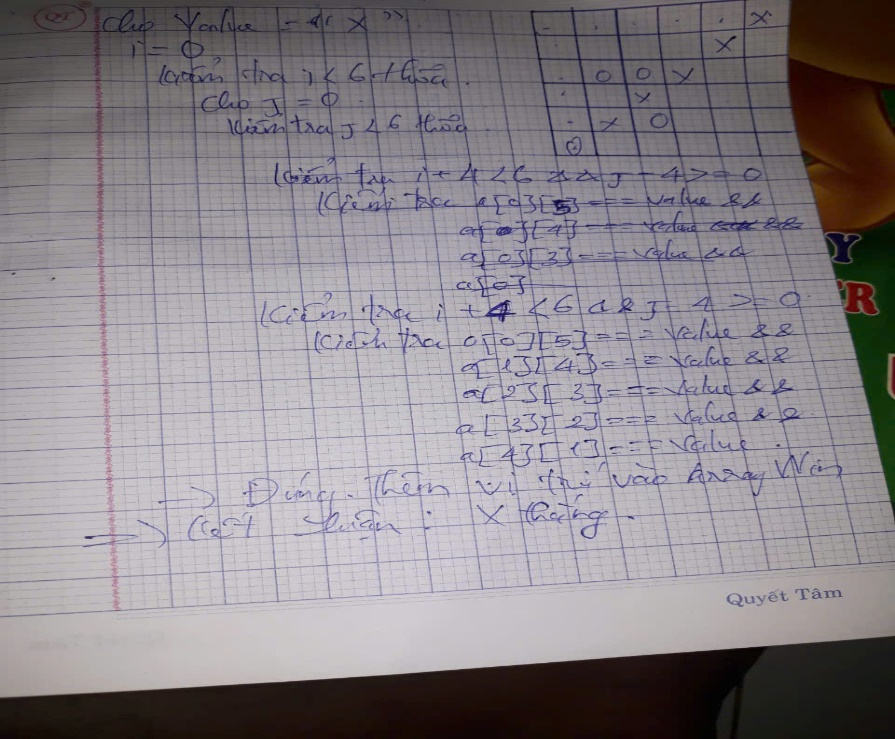 Q1
Cho Value = "X".
i = 0
Kiểm tra i < 6 thỏa.
Cho J = 0.
Kiểm tra J < 6 thỏa
. . . . . X
X
. O O X
. X
. X O
O
Kiểm tra i + 4 < 6 && J - 4 >= 0
Kiểm tra a[0][5] === Value &&
a[0][4] === Value &&
a[0][3] === Value &&
a[0]
Kiểm tra i + 4 < 6 && J - 4 >= 0
Kiểm tra a[0][5] === Value &&
a[1][4] === Value &&
a[2][3] === Value &&
a[3][2] === Value &&
a[4][1] === Value.
→ Đúng. Thêm vị trí vào Array Win
⇒ Kết luận: X thắng.
Quyết Tâm
Y
ER